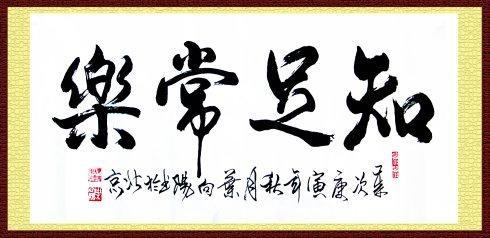 知足常樂
歲次庚寅年秋月葉向陽书於北京